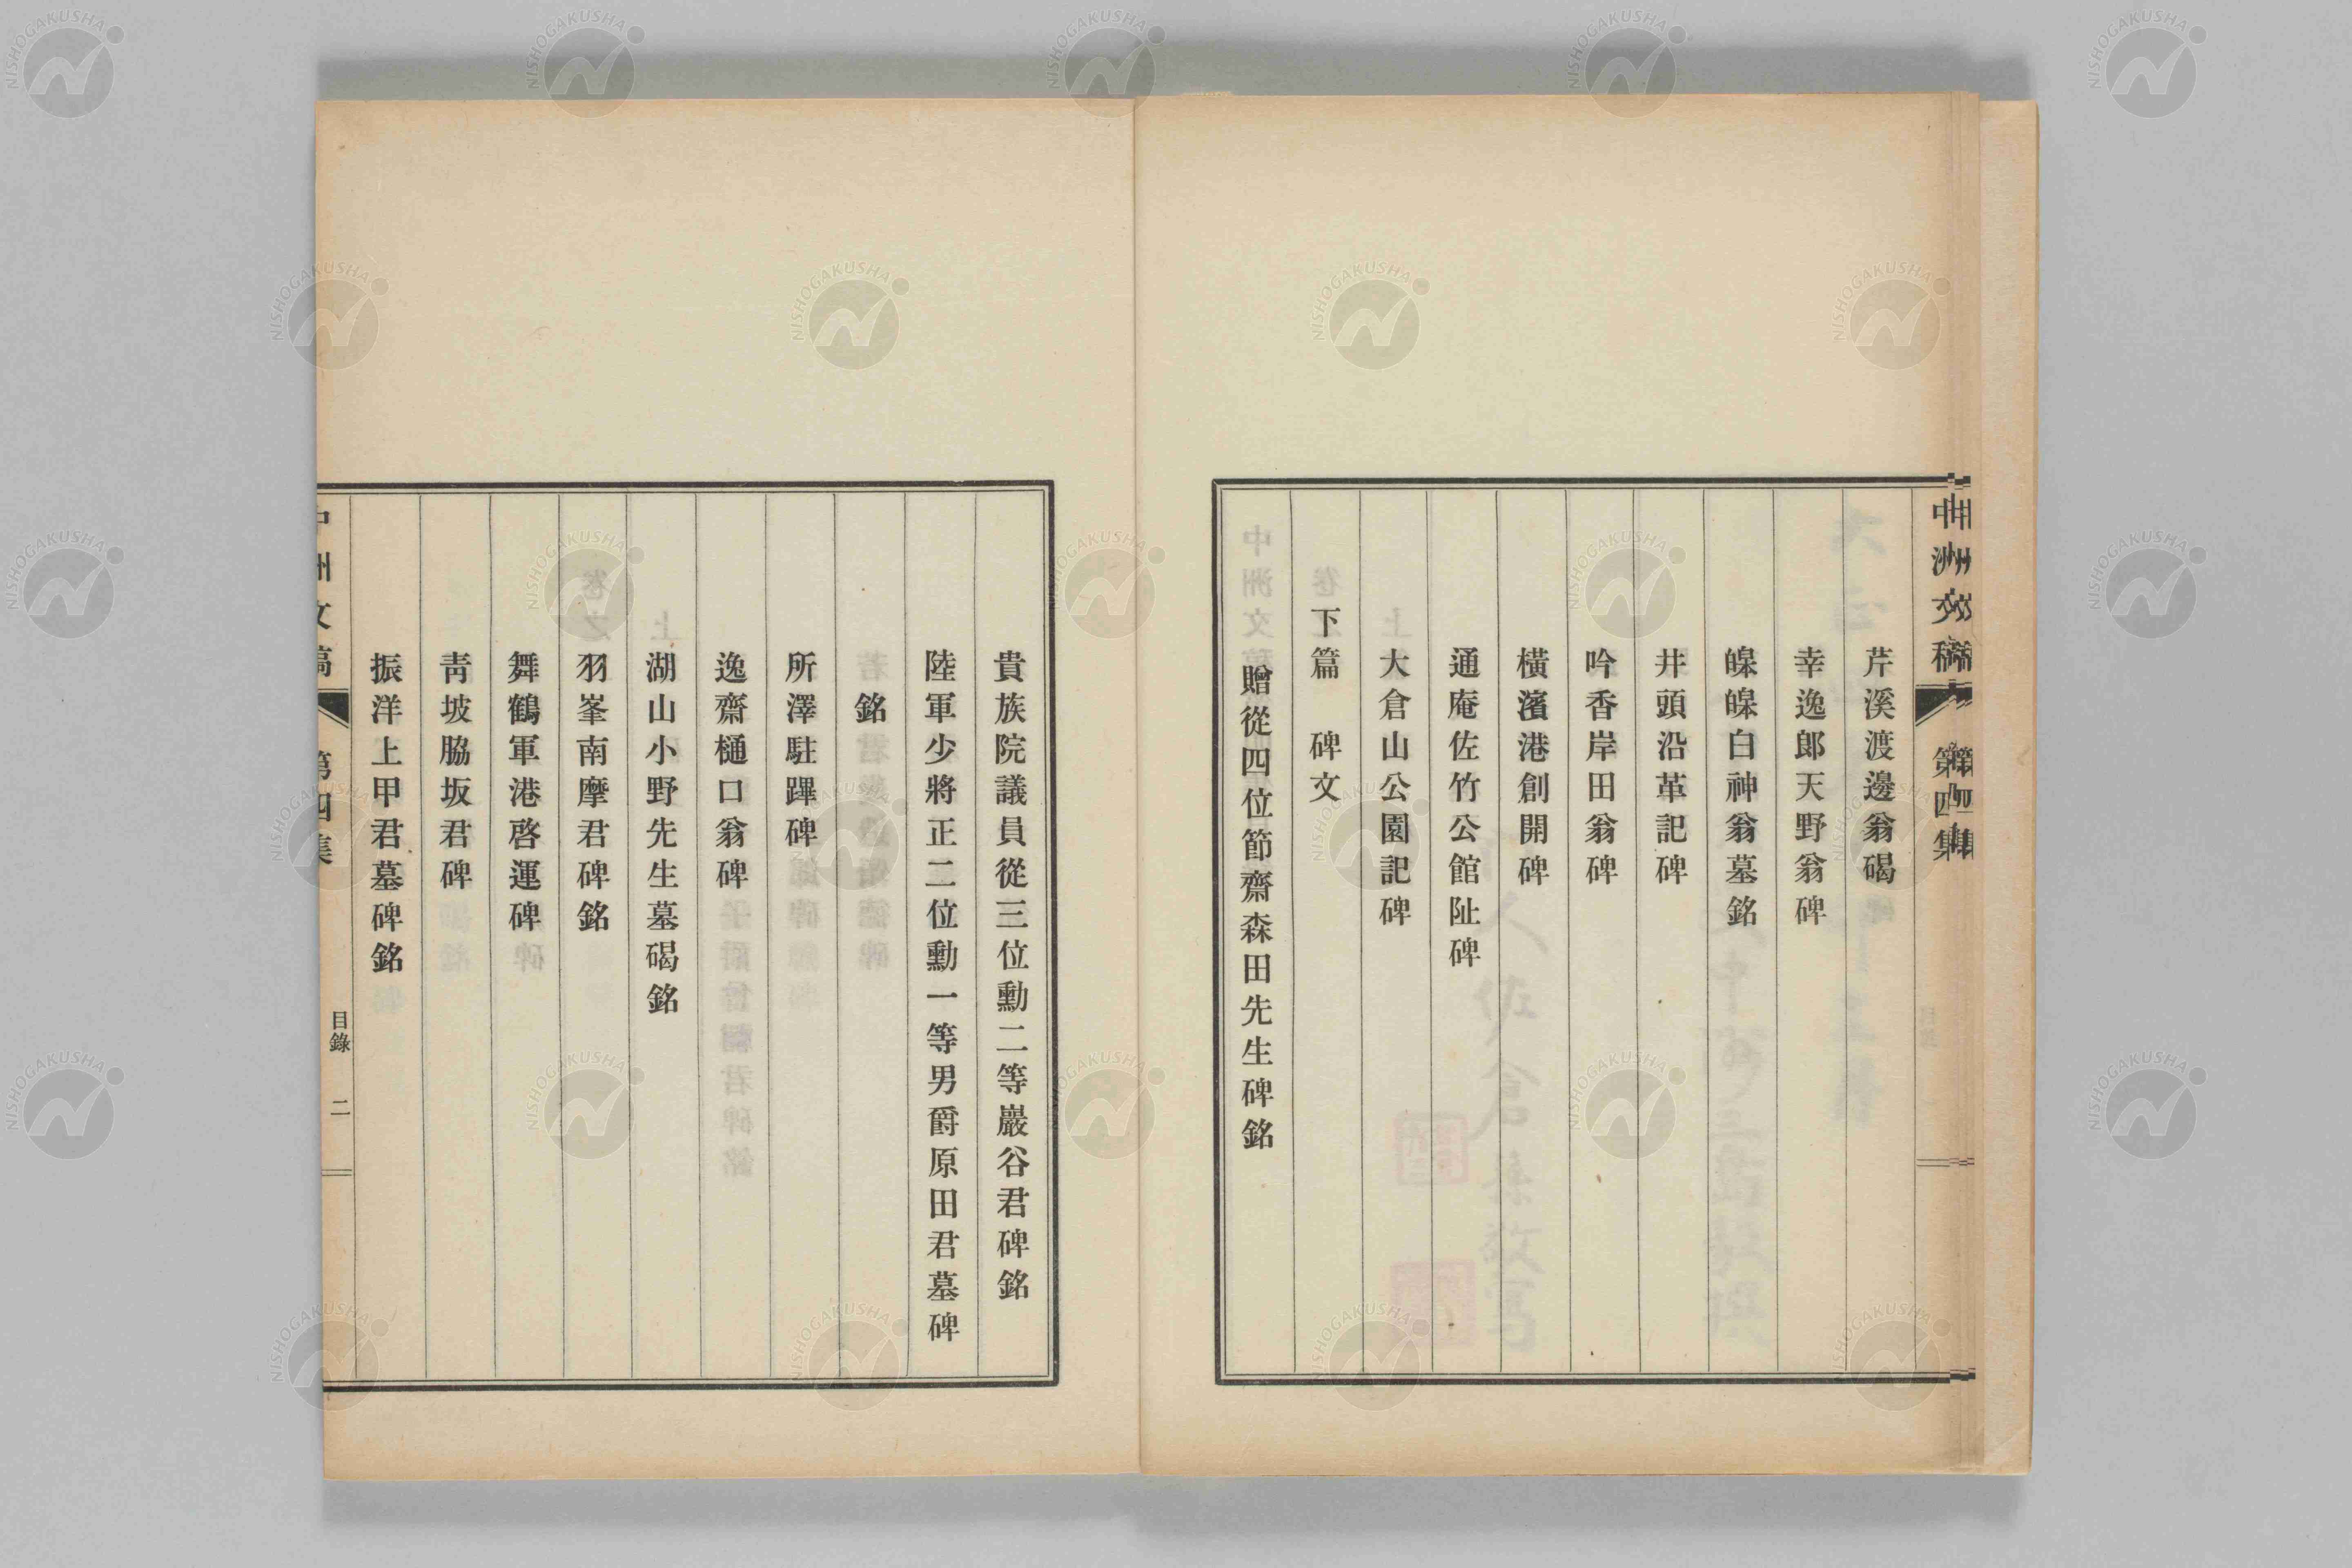 中洲文稿 第四集
芹溪渡邊翁碣
幸逸郎天野翁碑
皞皞白神翁墓銘
井頭沿革記碑
吟香岸田翁碑
橫濱港創開碑
通庵佐竹公館阯碑
大倉山公園記碑
下篇 碑文
贈從四位節齋森田先生碑銘
貴族院議員從三位勳二等巖谷君碑銘
陸軍少將正二位勳一等男爵原田君墓碑
銘
所澤駐蹕碑
逸齋樋口翁碑
湖山小野先生墓碣銘
羽峯南摩君碑銘
舞鶴軍港啓運碑
靑坡脇坂君碑
振洋上甲君墓碑銘
中洲文稿 第四集 目錄 二
NISHOGAKUSHA